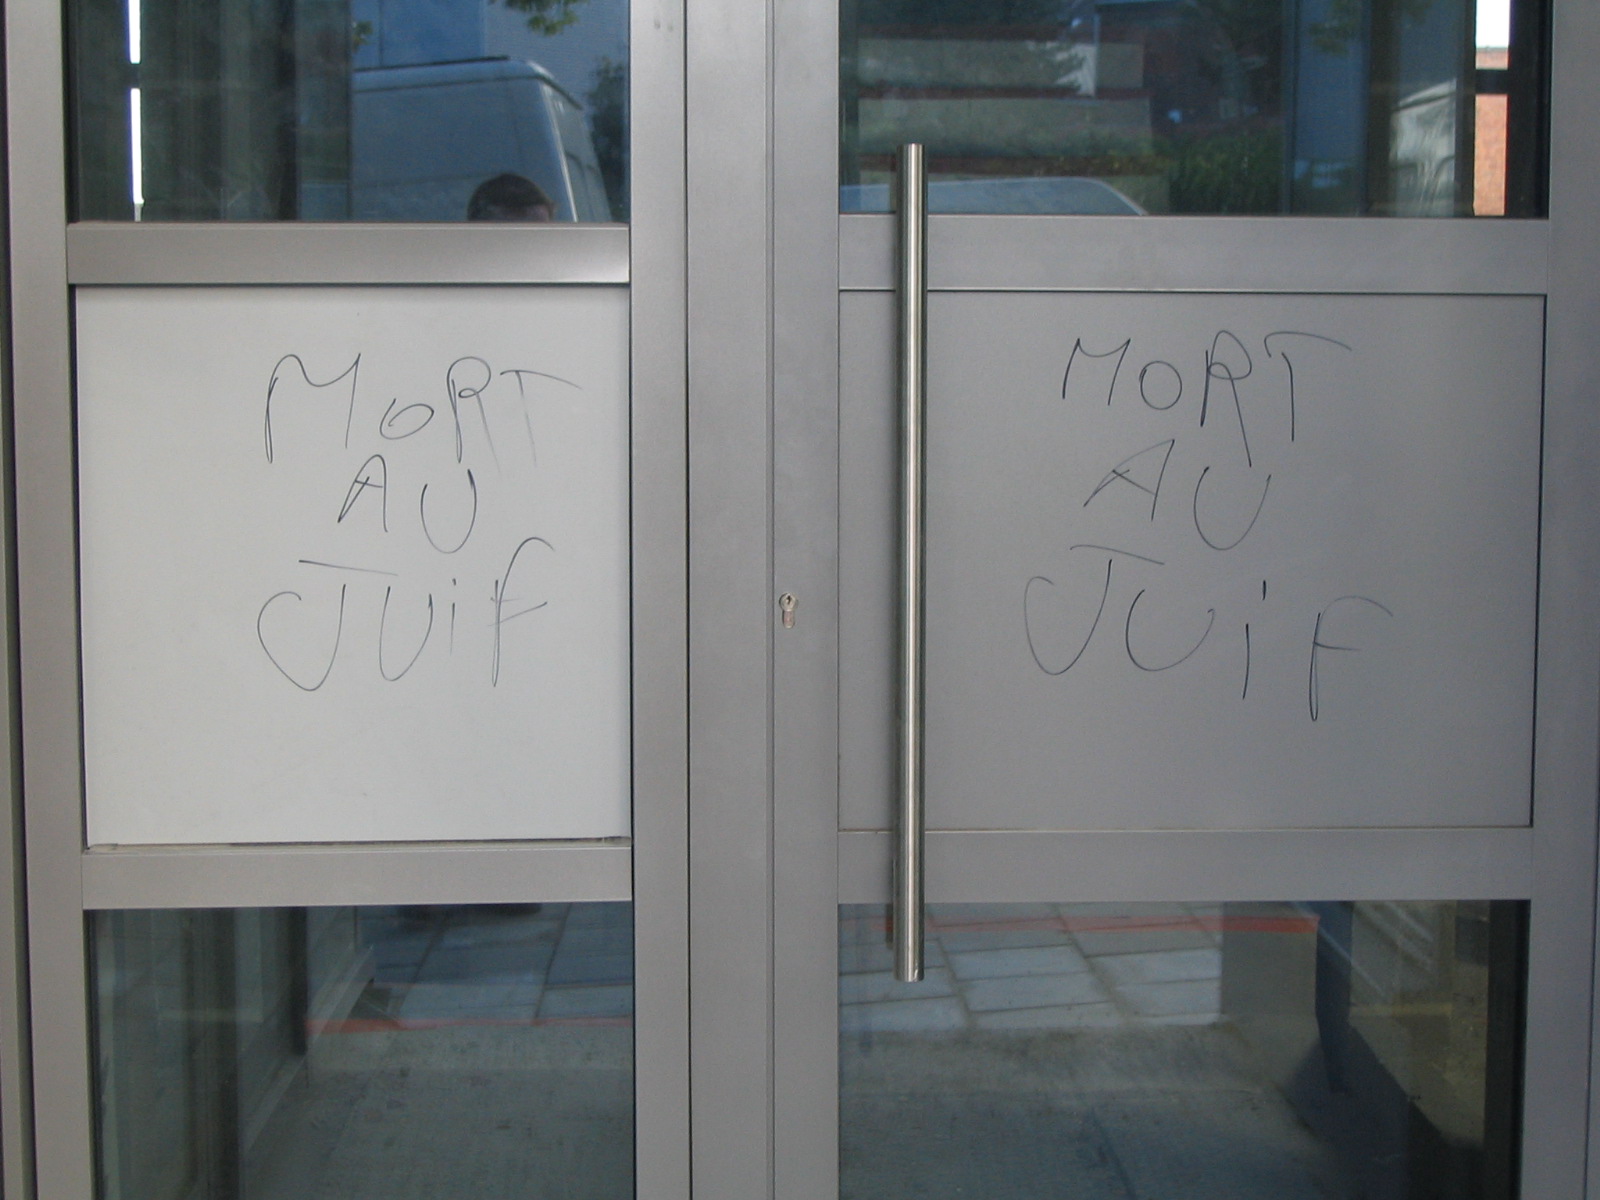 MORT
AU
JUiF
MORT
AU
JUiF